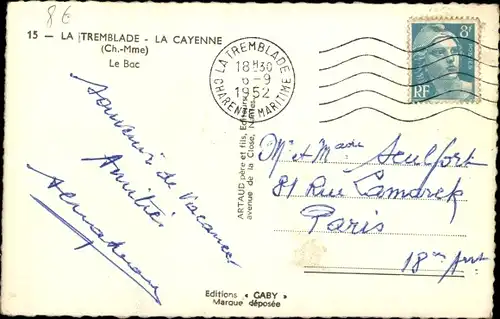 8€
15 — LA TREMBLADE - LA CAYENNE
(Ch.-Mme)
Le Bac
LA TREMBLADE
18H30
6-9
1952
CHARENTE MARITIME
8F
POSTES
RF
Souvenir de Vacances
Amitiés
ARTAUD père et fils, Editeurs
avenue de la Close, Nantes
Mr et Made Seulfort
81 Rue Lamarck
Paris
18me Arrt
Editions « GABY »
Marque déposée